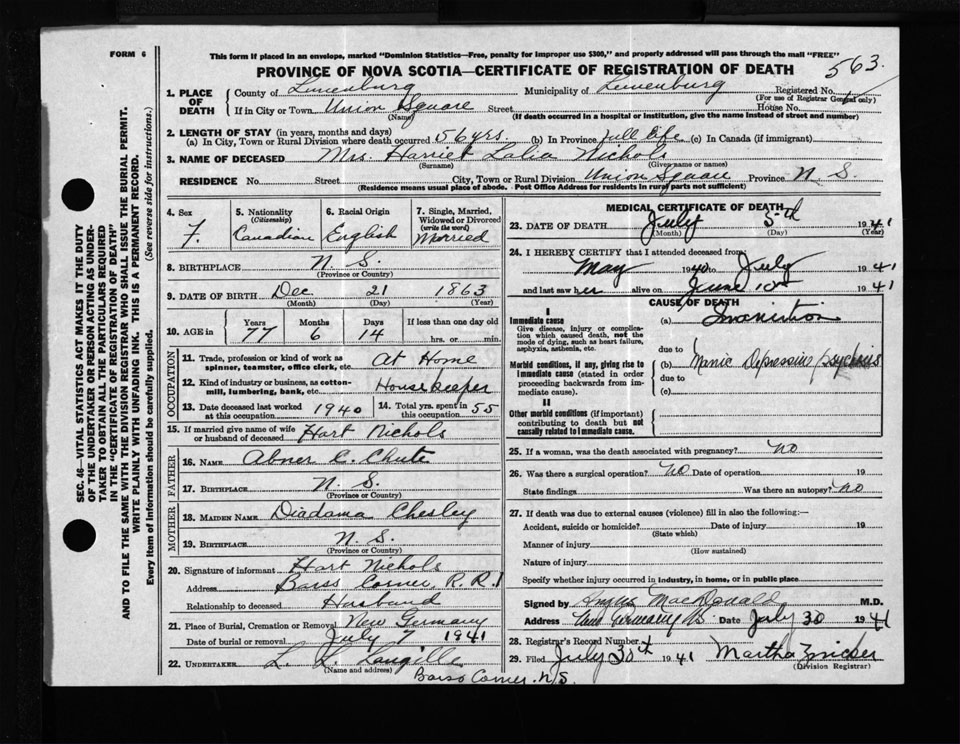 FORM 6
This form if placed in an envelope, marked "Dominion Statistics—Free, penalty for improper use $300," and properly addressed will pass through the mail "FREE"
PROVINCE OF NOVA SCOTIA—CERTIFICATE OF REGISTRATION OF DEATH
563.
1. PLACE OF DEATH
County of Lunenburg Municipality of Lunenburg Registered No.
(For use of Registrar General only)
If in City or Town Union Square Street House No.
(Name) (If death occurred in a hospital or institution, give the name instead of street and number)
2. LENGTH OF STAY (in years, months and days)
(a) In City, Town or Rural Division where death occurred 56 yrs. (b) In Province full life (c) In Canada (if immigrant)
3. NAME OF DECEASED Mrs. Harriet Lalia Nichols
(Surname) (Given name or names)
RESIDENCE No. Street City, Town or Rural Division Union Square Province N. S.
(Residence means usual place of abode. Post Office Address for residents in rural parts not sufficient)
4. Sex
F.
5. Nationality (Citizenship)
Canadian
6. Racial Origin
English
7. Single, Married, Widowed or Divorced (write the word)
Married
8. BIRTHPLACE N. S.
(Province or Country)
9. DATE OF BIRTH Dec 21 1863
(Month) (Day) (Year)
10. AGE in
Years Months Days If less than one day old
77 6 14 hrs. or min.
OCCUPATION
11. Trade, profession or kind of work as spinner, teamster, office clerk, etc. At Home
12. Kind of industry or business, as cotton-mill, lumbering, bank, etc. Housekeeper
13. Date deceased last worked at this occupation 1940
14. Total yrs. spent in this occupation 55
15. If married give name of wife or husband of deceased Hart Nichols
FATHER
16. NAME Abner C. Chute
17. BIRTHPLACE N. S.
(Province or Country)
MOTHER
18. MAIDEN NAME Diadama Chesley
19. BIRTHPLACE N. S.
(Province or Country)
20. Signature of informant Hart Nichols
Address Barss Corner, R. R. 1
Relationship to deceased Husband
21. Place of Burial, Cremation or Removal New Germany
Date of burial or removal July 7 1941
22. UNDERTAKER L. L. Langille
(Name and address)
Barss Corner. N.S.
MEDICAL CERTIFICATE OF DEATH
23. DATE OF DEATH July 5th 1941
(Month) (Day) (Year)
24. I HEREBY CERTIFY that I attended deceased from
May 1940 to July 1941
and last saw her alive on June 10th 1941
CAUSE OF DEATH
I
Immediate cause
Give disease, injury or complication which caused death, not the mode of dying, such as heart failure, asphyxia, asthenia, etc.
(a) Inanition
due to
Morbid conditions, if any, giving rise to immediate cause (stated in order proceeding backwards from immediate cause).
(b) Manic Depressive Psychosis
due to
(c)
II
Other morbid conditions (if important) contributing to death but not causally related to immediate cause.
25. If a woman, was the death associated with pregnancy? No
26. Was there a surgical operation? No Date of operation 19
State findings Was there an autopsy? No
27. If death was due to external causes (violence) fill in also the following:—
Accident, suicide or homicide? Date of injury 19
(State which)
Manner of injury
(How sustained)
Nature of injury
Specify whether injury occurred in industry, in home, or in public place
Signed by Angus MacDonald M.D.
Address New Germany N.S. Date July 30 1941
28. Registrar's Record Number 4
29. Filed July 30th 1941 Martha Zwicker
(Division Registrar)
SEC. 46—VITAL STATISTICS ACT MAKES IT THE DUTY
OF THE UNDERTAKER OR PERSON ACTING AS UNDER-
TAKER TO OBTAIN ALL THE PARTICULARS REQUIRED
IN THE "CERTIFICATE OF REGISTRATION OF DEATH"
AND TO FILE THE SAME WITH THE DIVISION REGISTRAR WHO SHALL ISSUE THE BURIAL PERMIT.
WRITE PLAINLY WITH UNFADING INK. THIS IS A PERMANENT RECORD.
Every item of information should be carefully supplied. (See reverse side for instructions.)